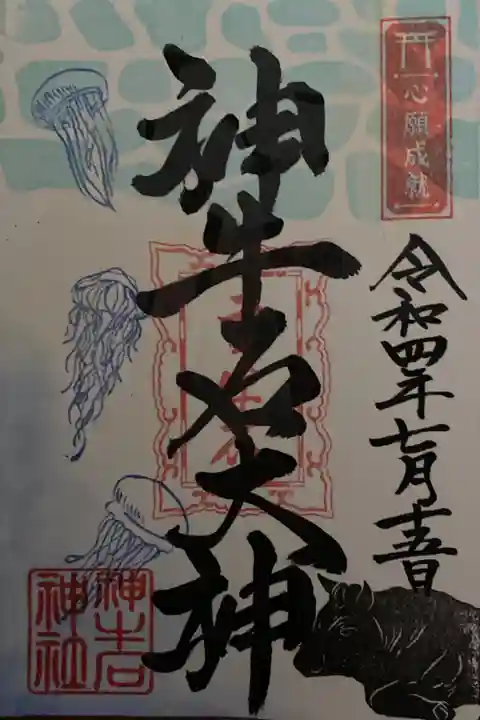 心願成就
令和四年七月十五日
神牛石大神
神牛石
神社